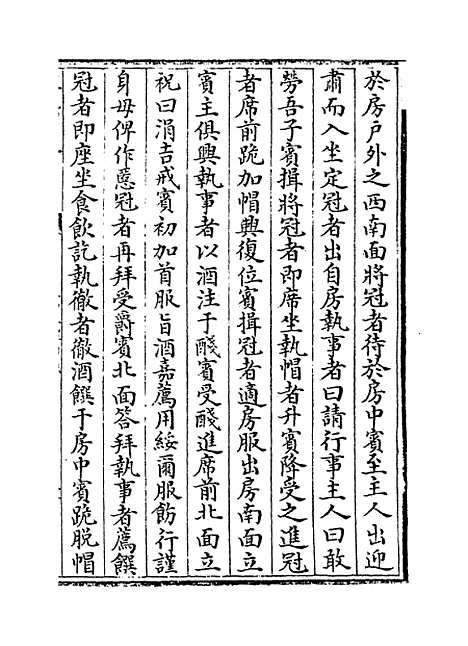 於房戶外之西南面將冠者待於房中賓至主人出迎
肅而入坐定冠者出自房執事者曰請行事主人曰敢
勞吾子賓揖將冠者即席坐執帽者升賓降受之進冠
者席前跪加帽興復位賓揖冠者適房服出房南面立
賓主俱興執事者以酒注于醆賓受醆進席前北面立
祝曰涓吉戒賓初加首服旨酒嘉薦用綏爾服飭行謹
身毋俾作慝冠者再拜受爵賓北面答拜執事者薦饌
冠者即座坐食飲訖執徹者徹酒饌于房中賓跪脫帽